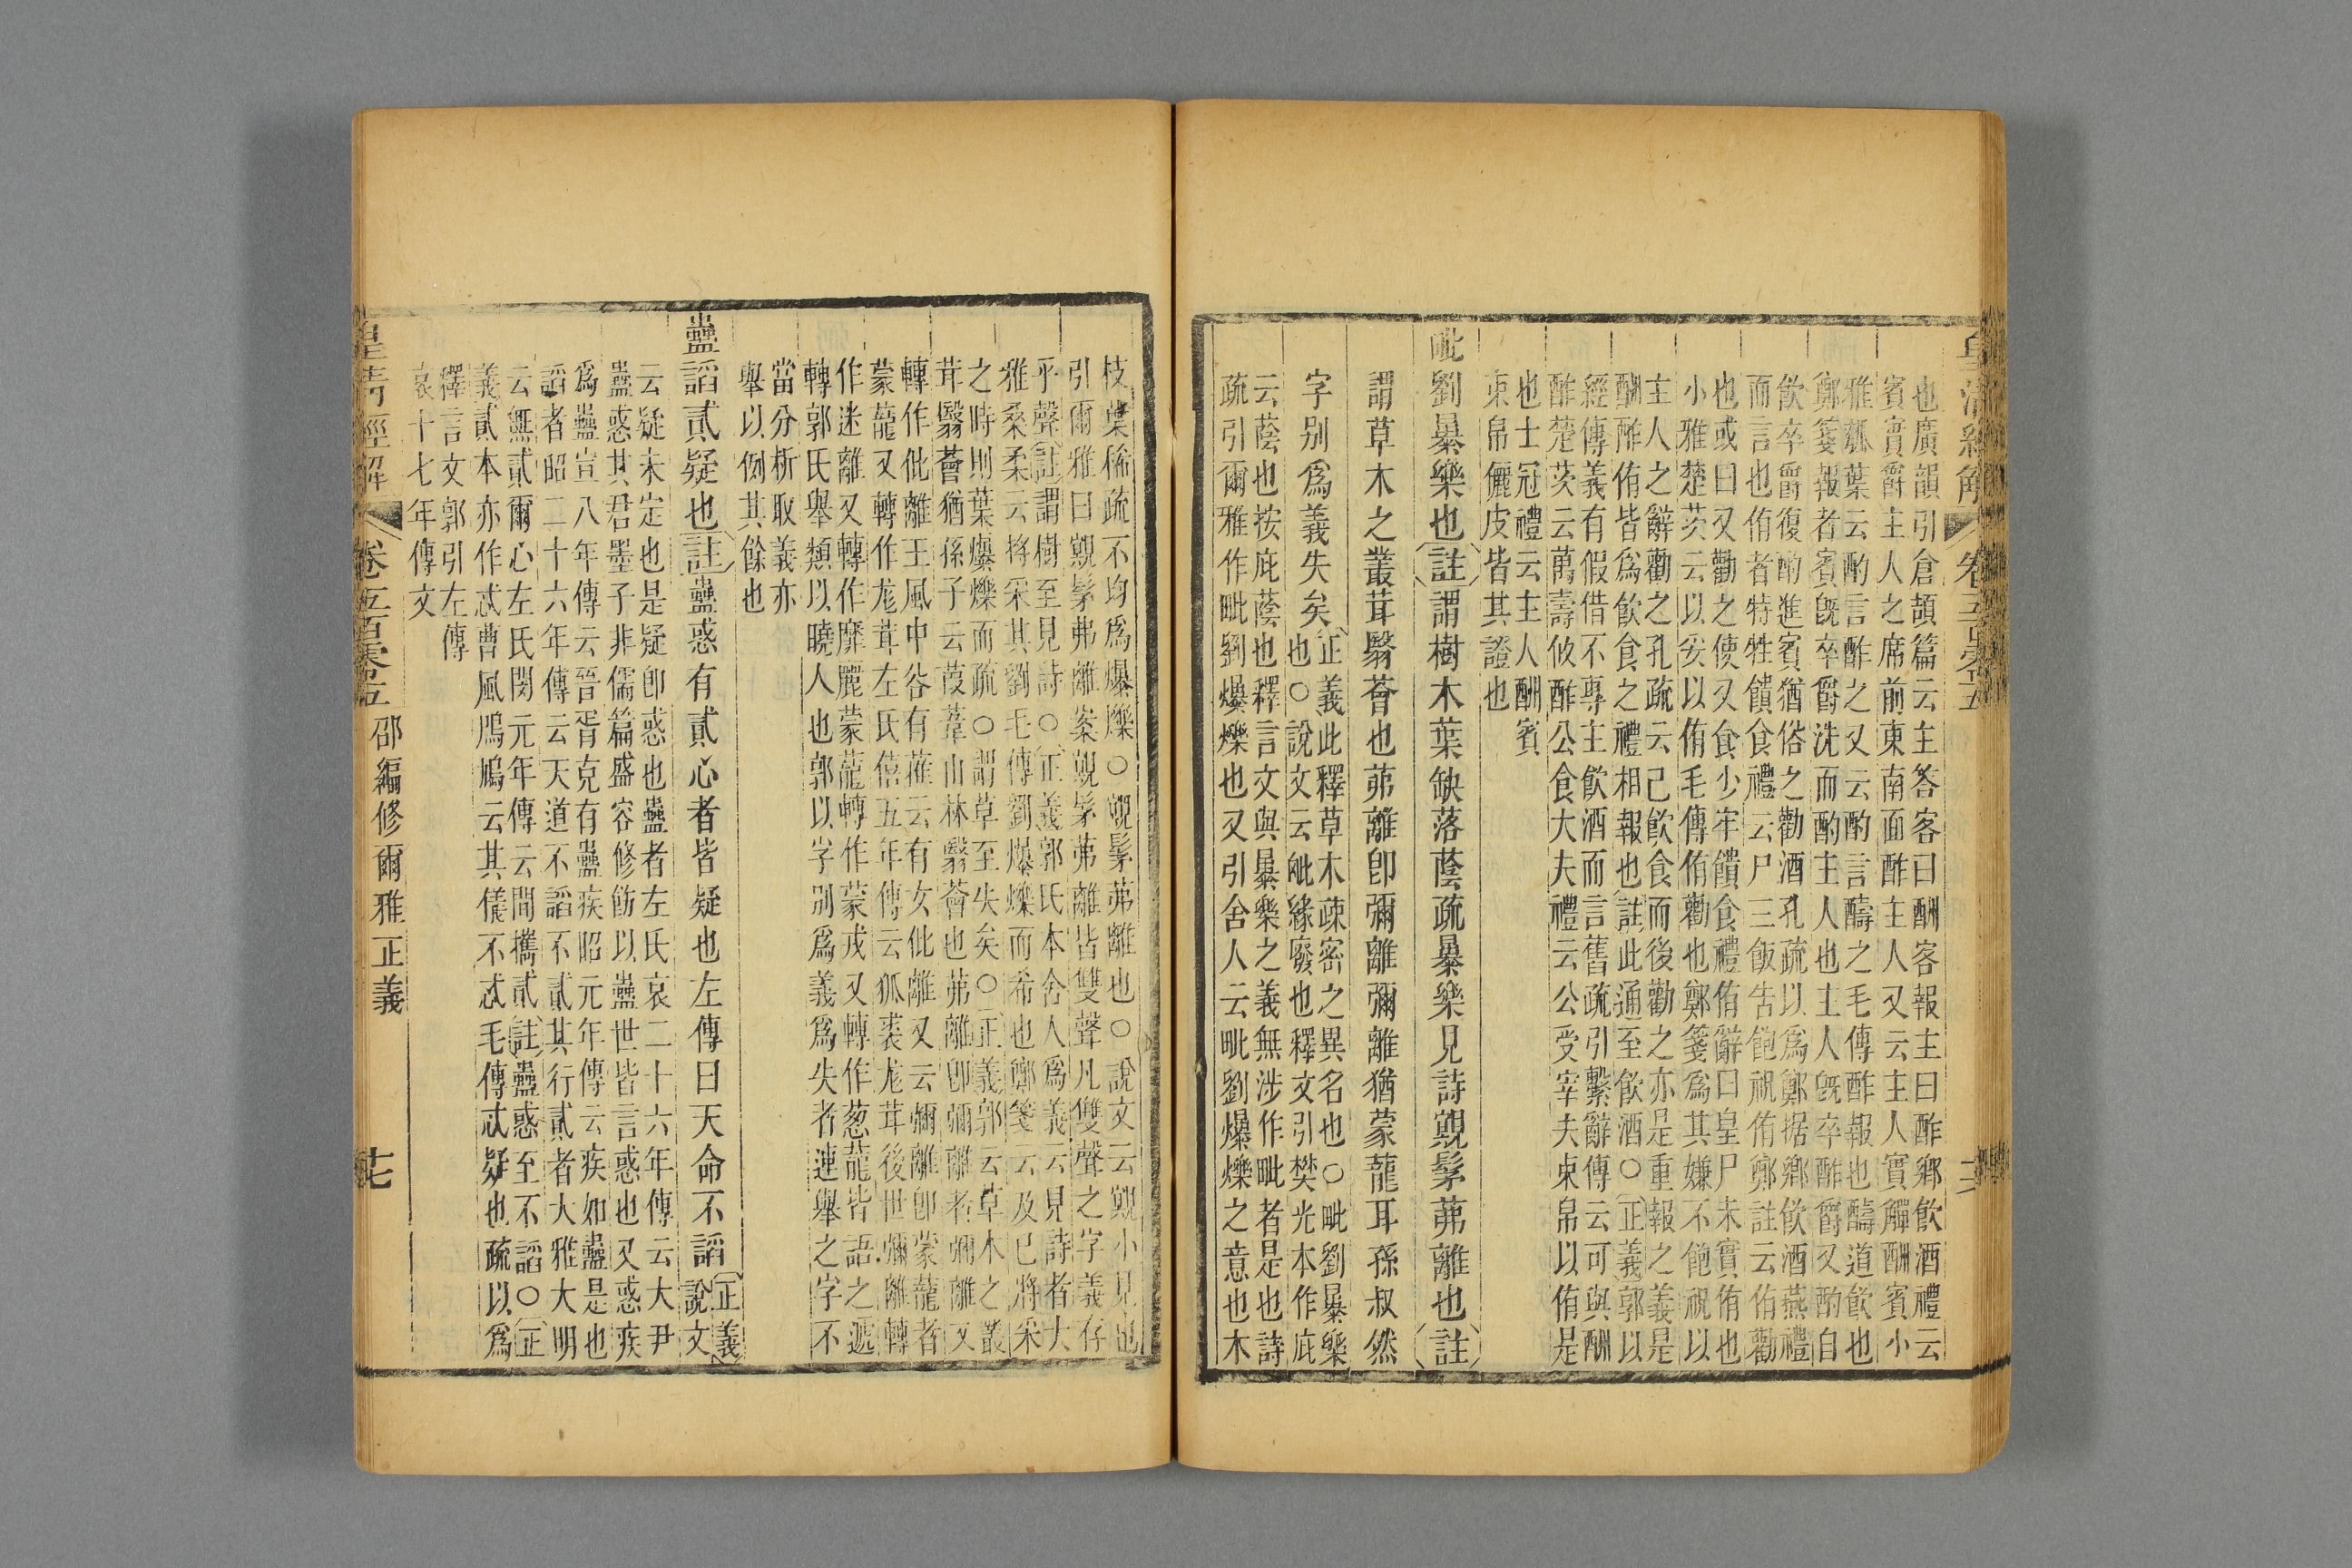 皇清經解 卷五百零五
也廣韻引倉頡篇云主答客曰酬客報主曰酢鄉飲酒禮云
賓實爵主人之席前東南面酢主人又云主人實觶酬賓小
雅瓠葉云酌言酢之又云酌言醻之毛傳酢報也醻道飲也
鄭箋報者賓旣卒爵洗而酌主人也主人旣卒酢爵又酌自
飲卒爵復酌進賓猶俗之勸酒孔疏以爲鄭据鄉飲酒燕禮
而言也侑者特牲饋食禮云尸三飯告飽祝侑鄭註云侑勸
也或曰又勸之使又食少牢饋食禮侑辭曰皇尸未實侑也
小雅楚茨云以妥以侑毛傳侑勸也鄭箋爲其嫌不飽祝以
主人之辭勸之孔疏云己飲食而後勸之亦是重報之義是
酬酢侑皆爲飲食之禮相報也註此通至飲酒○正義郭以
經傳義有假借不專主飲酒而言舊疏引繫辭傳云可與酬
酢楚茨云萬壽攸酢公食大夫禮云公受宰夫束帛以侑是
也士冠禮云主人酬賓
束帛儷皮皆其證也
毗劉暴樂也註謂樹木葉缺落蔭疏暴樂見詩覭髳茀離也註
謂草木之叢茸翳薈也茀離卽彌離彌離猶蒙蘢耳孫叔然
字别爲義失矣正義此釋草木疎密之異名也○毗劉暴樂
也○說文云毗緣廢也釋文引樊光本作庇
云蔭也按庇蔭也釋言文與暴樂之義無涉作毗者是也詩
疏引爾雅作毗劉爆爍也又引舍人云毗劉爆爍之意也木
枝葉稀疏不均爲爆爍○覭髳茀離也○說文云覭小見也
引爾雅曰覭髳弗離案覭髳茀離皆雙聲凡雙聲之字義存
乎聲註謂樹至見詩○正義郭氏本舍人爲義云見詩者大
雅桑柔云捋采其劉毛傳劉爆爍而希也鄭箋云及已捋采
之時則葉爆爍而疏○謂草至失矣○正義郭云草木之叢
茸翳薈猶孫子云葭葦山林翳薈也茀離卽彌離者彌離又
轉作仳離王風中谷有蓷云有女仳離又云彌離卽蒙蘢者
蒙蘢又轉作尨茸左氏僖五年傳云狐裘尨茸後世彌離轉
作迷離又轉作靡麗蒙蘢轉作蒙戎又轉作葱蘢皆語之遞
轉郭氏舉類以曉人也郭以字别爲義爲失者連舉之字不
當分析取義亦
舉以例其餘也
蠱謟貳疑也註蠱惑有貳心者皆疑也左傳曰天命不謟正義
說文
云疑未定也是疑卽惑也蠱者左氏哀二十六年傳云大尹
蠱惑其君墨子非儒篇盛容修飭以蠱世皆言惑也又惑疾
爲蠱宣八年傳云晉胥克有蠱疾昭元年傳云疾如蠱是也
謟者昭二十六年傳云天道不謟不貳其行貳者大雅大明
云無貳爾心左氏閔元年傳云間攜貳註蠱惑至不謟○正
義貳本亦作忒曹風鳲鳩云其儀不忒毛傳忒疑也疏以爲
釋言文郭引左傳
哀十七年傳文
皇清經解 卷五百零五 邵編修爾雅正義 十七